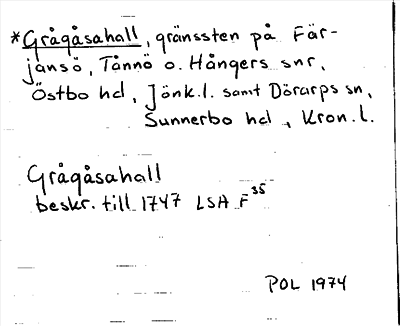 *Grågåsahall, gränssten på Fär-
jansö, Tånnö o. Hångers snr,
Östbo hd, Jönk.l. samt Dörarps sn,
Sunnerbo hd, Kron.l.
Grågåsahall
beskr. till 1747 LSA F 35
POL 1974